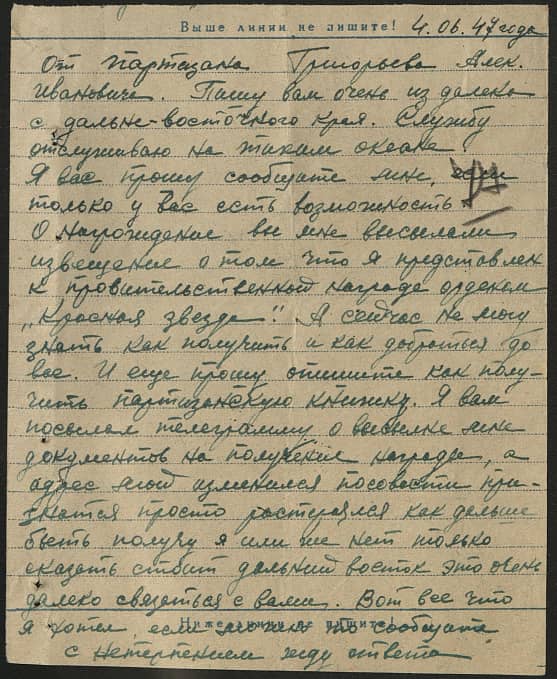 Выше линии не пишите! 4.06.47 года
От партизана Григорьева Алек.
Ивановича. Пишу вам очень из далека
с дальне-восточного края. Службу
отслуживаю на тихом океане.
Я вас прошу сообщите мне, если
только у вас есть возможность
О награждение вы мне высылали
извещение о том что я представлен
к провительственной награде орденом
„Красная звезда". А сейчас не могу
знать как получить и как добраться до
вас. И еще прошу опишите как полу-
чить партизанскую книжку. Я вам
посылал телеграмму о высылке мне
документов на получение награды, а
адрес мой изменился посовести при-
знатся просто ростерялся как дальше
быть получу я или же нет только
сказать стоит дальний восток это очень
далеко связаться с вами. Вот все что
я хотел если можно то сообщите
Ниже линии не пишите!
с нетерпением жду ответа